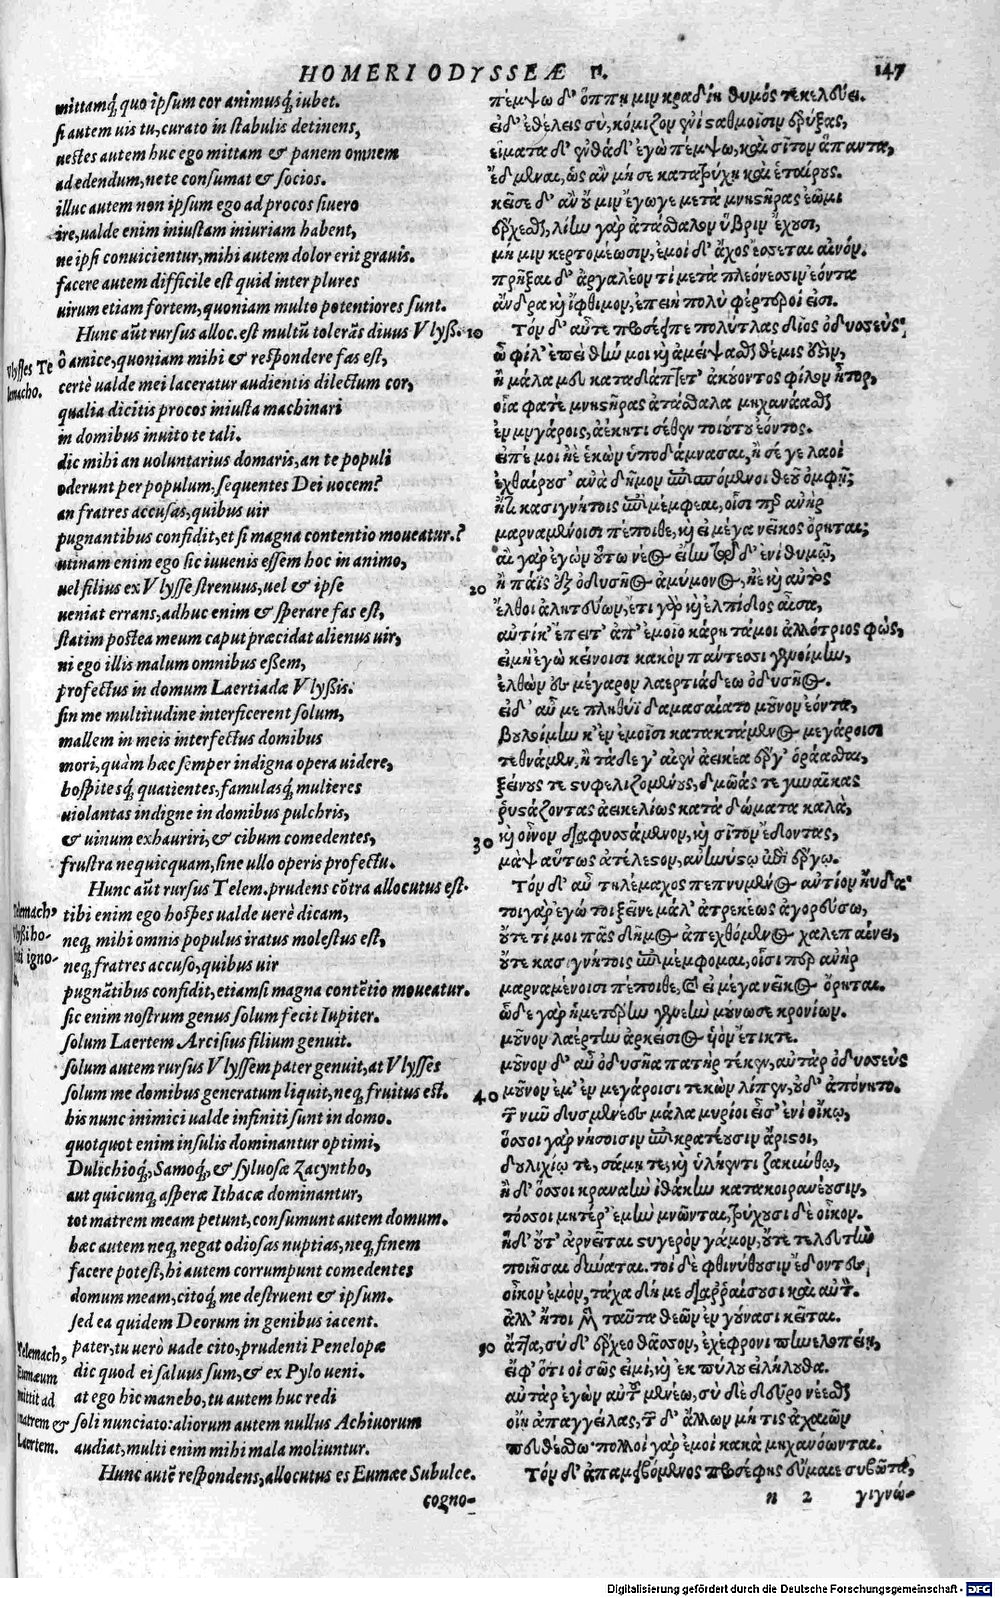 HOMERI ODYSSEÆ Π. 147
mittamq́; quo ipsum cor animusq́; iubet.
si autem uis tu, curato in stabulis detinens,
uestes autem huc ego mittam & panem omnem
ad edendum, ne te consumat & socios.
illuc autem non ipsum ego ad procos siuero
ire, ualde enim iniustam iniuriam habent,
ne ipsi conuicientur, mihi autem dolor erit grauis.
facere autem difficile est quid inter plures
uirum etiam fortem, quoniam multo potentiores sunt.
Hunc aũt rursus alloc. est multũ tolerãs diuus Vlyss.
Vlysses Te
lemacho.
ô amice, quoniam mihi & respondere fas est,
certè ualde mei laceratur audientis dilectum cor,
qualia dicitis procos iniusta machinari
in domibus inuito te tali.
dic mihi an uoluntarius domaris, an te populi
oderunt per populum, sequentes Dei uocem?
an fratres accusas, quibus uir
pugnantibus confidit, et si magna contentio moueatur.?
utinam enim ego sic iuuenis essem hoc in animo,
uel filius ex Vlysse strenuus, uel & ipse
ueniat errans, adhuc enim & sperare fas est,
statim postea meum caput præcidat alienus uir,
ni ego illis malum omnibus essem,
profectus in domum Laertiadæ Vlyssis.
sin me multitudine interficerent solum,
mallem in meis interfectus domibus
mori, quàm hæc semper indigna opera uidere,
hospitesq́; quatientes, famulasq́; mulieres
uiolantas indigne in domibus pulchris,
& uinum exhauriri, & cibum comedentes,
frustra nequicquam, sine ullo operis profectu.
Hunc aũt rursus Telem. prudens cõtra allocutus est.
Telemach9
Vlyssi ho-
spiti igno-
tibi enim ego hospes ualde uerè dicam,
neq; mihi omnis populus iratus molestus est,
neq; fratres accuso, quibus uir
pugnãtibus confidit, etiamsi magna contẽtio moueatur.
sic enim nostrum genus solum fecit Iupiter.
solum Laertem Arcisius filium genuit.
solum autem rursus Vlyssem pater genuit, at Vlysses
solum me domibus generatum liquit, neq; fruitus est.
his nunc inimici ualde infiniti sunt in domo.
quotquot enim insulis dominantur optimi,
Dulichioq́;, Samoq́;, & syluosæ Zacyntho,
aut quicunq; asperæ Ithacæ dominantur,
tot matrem meam petunt, consumunt autem domum.
hæc autem neq; negat odiosas nuptias, neq; finem
facere potest, hi autem corrumpunt comedentes
domum meam, citoq́; me destruent & ipsum.
sed ea quidem Deorum in genibus iacent.
Telemach,
Eumæum
mittit ad
matrem &
Laertem.
pater, tu uerò uade cito, prudenti Penelopæ
dic quod ei saluus sum, & ex Pylo ueni.
at ego hic manebo, tu autem huc redi
soli nunciato: aliorum autem nullus Achiuorum
audiat, multi enim mihi mala moliuntur.
Hunc autẽ respondens, allocutus es Eumæe Subulce.
cogno-
πέμψω δ' ὅππη μιν κραδίη θυμός τε κελεύει.
εἰ δ' ἐθέλεις σύ, κόμιζον ἐνὶ σαθμοῖσιν ἐρύξας,
εἵματα δ' ἐνθάδ' ἐγὼ πέμψω, καὶ σῖτον ἅπαντα,
ἔδμεναι, ὡς ἂν μή σε κατατρύχῃ καὶ ἑταίρους.
κεῖσε δ' ἂν οὔ μιν ἔγωγε μετὰ μνηστῆρας ἐῷμι
ἔρχεσθαι, λίην γὰρ ἀτάσθαλον ὕβριν ἔχουσι,
μή μιν κερτομέωσιν, ἐμοὶ δ' ἄχος ἔσσεται αἰνόν.
πρῆξαι δ' ἀργαλέον τὶ μετὰ πλεόνεσσιν ἐόντα
ἄνδρα κὶ ἴφθιμον, ἐπειὴ πολὺ φέρτεροί εἰσι.
10 Τόν δ' αὖτε προσέειπε πολύτλας δῖος ὀδυσσεύς,
ὦ φίλ' ἐπεὶ θήν μοι κὶ ἀμείψασθαι θέμις ἐστιν,
ἦ μάλα μευ καταδάπτετ' ἀκούοντος φίλον ἦτορ,
οἷα φατὲ μνηστῆρας ἀτάσθαλα μηχανάασθαι
ἐν μεγάροις, ἀέκητι σέθεν τοιούτου ἐόντος.
εἰπέ μοι ἠὲ ἑκὼν ὑποδάμνασαι, ἦ σέ γε λαοὶ
ἐχθαίρουσ' ἀνὰ δῆμον ἐπισπόμενοι θεοῦ ὀμφῇ;
ἦ τι κασιγνήτοις ἐπιμέμφεαι, οἷσί περ ἀνὴρ
μαρναμένοισι πέποιθε, κὶ εἰ μέγα νεῖκος ὄρηται;
αἲ γὰρ ἐγὼν οὕτω νέος εἴην τῷδ' ἐνὶ θυμῷ,
20 ἢ παῖς ἐξ ὀδυσῆος ἀμύμονος, ἠὲ κὶ αὐτὸς
ἔλθοι ἀλητεύων, ἔτι γὰρ κὶ ἐλπίδος αἶσα,
αὐτίκ' ἔπειτ' ἀπ' ἐμοῖο κάρη τάμοι ἀλλότριος φώς,
εἰ μὴ ἐγὼ κείνοισι κακὸν πάντεσσι γενοίμην,
ἐλθὼν ἐς μέγαρον λαερτιάδεω ὀδυσῆος.
εἰ δ' αὖ με πληθύϊ δαμασαίατο μοῦνον ἐόντα,
βουλοίμην κ' ἐν ἐμοῖσι κατακτάμενος μεγάροισι
τεθνάμεν, ἢ τάδε γ' αἰὲν ἀεικέα ἔργ' ὁράασθαι,
ξείνους τε στυφελιζομένους, δμωάς τε γυναῖκας
ῥυστάζοντας ἀεικελίως κατὰ δώματα καλὰ,
30 κὶ οἶνον διαφυσσόμενον, κὶ σῖτον ἔδοντας,
μὰψ αὕτως ἀτέλεστον, ἀνηνύστῳ ἐπὶ ἔργῳ.
Τόν δ' αὖ τηλέμαχος πεπνυμένος ἀντίον ηὔδα
τοιγὰρ ἐγώ τοι ξεῖνε μάλ' ἀτρεκέως ἀγορεύσω,
οὔτε τί μοι πᾶς δῆμος ἀπεχθόμενος χαλεπαίνει,
οὔτε κασιγνήτοις ἐπιμέμφομαι, οἷσί περ ἀνὴρ
μαρναμένοισι πέποιθε, καὶ εἰ μέγα νεῖκος ὄρηται.
ὧδε γὰρ ἡμετέρην γενεὴν μούνωσε κρονίων.
μοῦνον λαέρτην ἀρκείσιος ὑιὸν ἔτικτε.
μοῦνον δ' αὖ ὀδυσῆα πατὴρ τέκεν, αὐτὰρ ὀδυσσεὺς
40 μοῦνον ἔμ' ἐν μεγάροισι τεκὼν λίπεν, οὐδ' ἀπόνητο.
τῷ νῦν δυσμενέες μάλα μυρίοι εἰσ' ἐνὶ οἴκῳ,
ὅσσοι γὰρ νήσοισιν ἐπικρατέουσιν ἄριστοι,
δουλιχίῳ τε, σάμῃ τε, κὶ ὑλήεντι ζακύνθῳ,
ἠδ' ὅσσοι κραναὴν ἰθάκην κατακοιρανέουσιν,
τόσσοι μητέρ' ἐμὴν μνῶνται, τρύχουσι δὲ οἶκον.
ἡ δ' οὔτ' ἀρνεῖται στυγερὸν γάμον, οὔτε τελευτὴν
ποιῆσαι δύναται. τοὶ δὲ φθινύθουσιν ἔδοντες,
οἶκον ἐμόν, τάχα δή με διαῤῥαίσουσι καὶ αὐτόν.
ἀλλ' ἤτοι μὲν ταῦτα θεῶν ἐν γούνασι κεῖται.
50 ἄττα, σὺ δ' ἔρχεο θᾶσσον, ἐχέφρονι πηνελοπείῃ,
εἴφ' ὅτι οἱ σῶς εἰμὶ, κὶ ἐκ πύλου εἰλήλουθα.
αὐτὰρ ἐγὼν αὐτοῦ μενέω, σὺ δὲ δεῦρο νέεσθαι
οἴῃ ἀπαγγείλας, τῶν δ' ἄλλων μή τις ἀχαιῶν
πευθέσθω· πολλοὶ γὰρ ἐμοὶ κακὰ μηχανόωνται.
Τόν δ' ἀπαμειβόμενος προσέφης εὔμαιε συβῶτα,
n 2 γιγνώ-
Digitalisierung gefördert durch die Deutsche Forschungsgemeinschaft - DFG